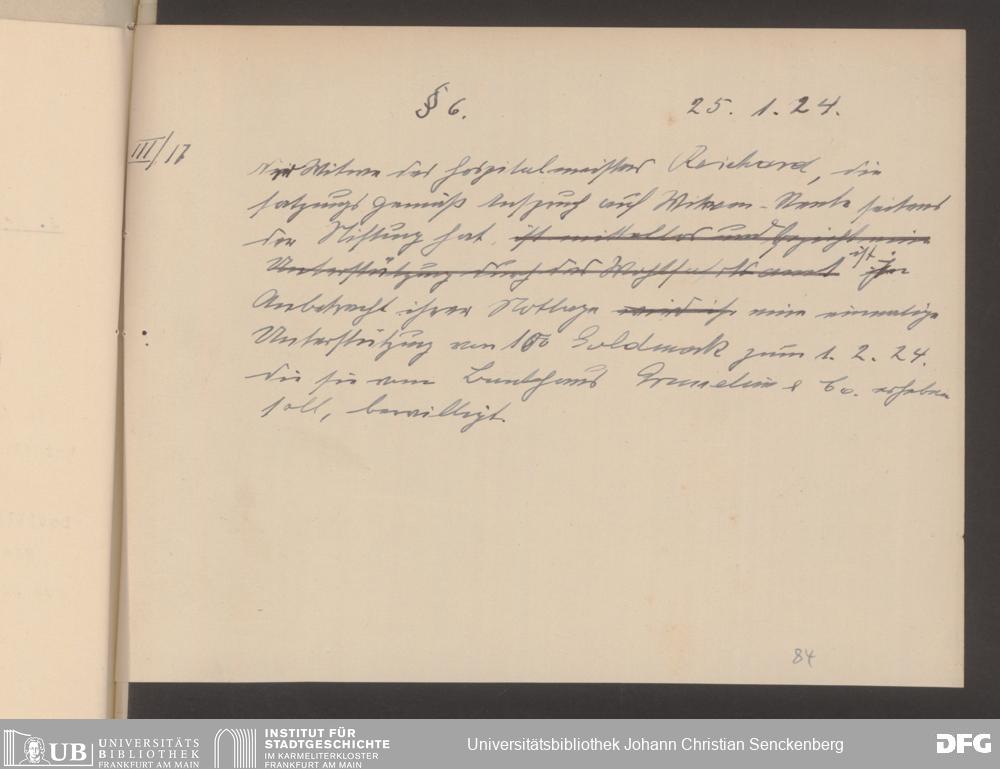 § 6. 25. 1. 24.
III/17
Der Witwe des Hospitalmeisters Reichard, die
satzungsgemäß Anspruch auf Witwen-Rente seitens
der Stiftung hat, ist mittellos und bezieht eine
Unterstützung durch das Wohlfahrtsamt ist in
Anbetracht ihrer Notlage wird ihr eine einmalige
Unterstützung von 100 Goldmark zum 1. 2. 24.
die sie vom Bankhaus & Co. erheben
soll, bewilligt.
84
UB UNIVERSITÄTS
BIBLIOTHEK
FRANKFURT AM MAIN
INSTITUT FÜR
STADTGESCHICHTE
IM KARMELITERKLOSTER
FRANKFURT AM MAIN
Universitätsbibliothek Johann Christian Senckenberg
DFG